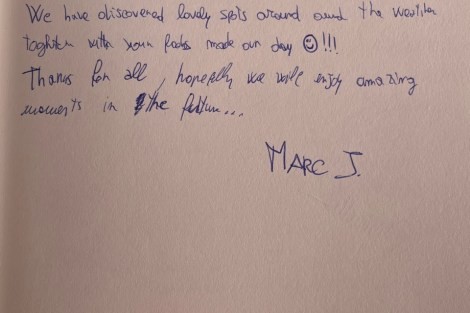 We have discovered lovely spots around and the weather
toghether with your foods made our day ☺!!!
Thanks for all, hopefully we will enjoy amazing
moments in the future...
MARC J.